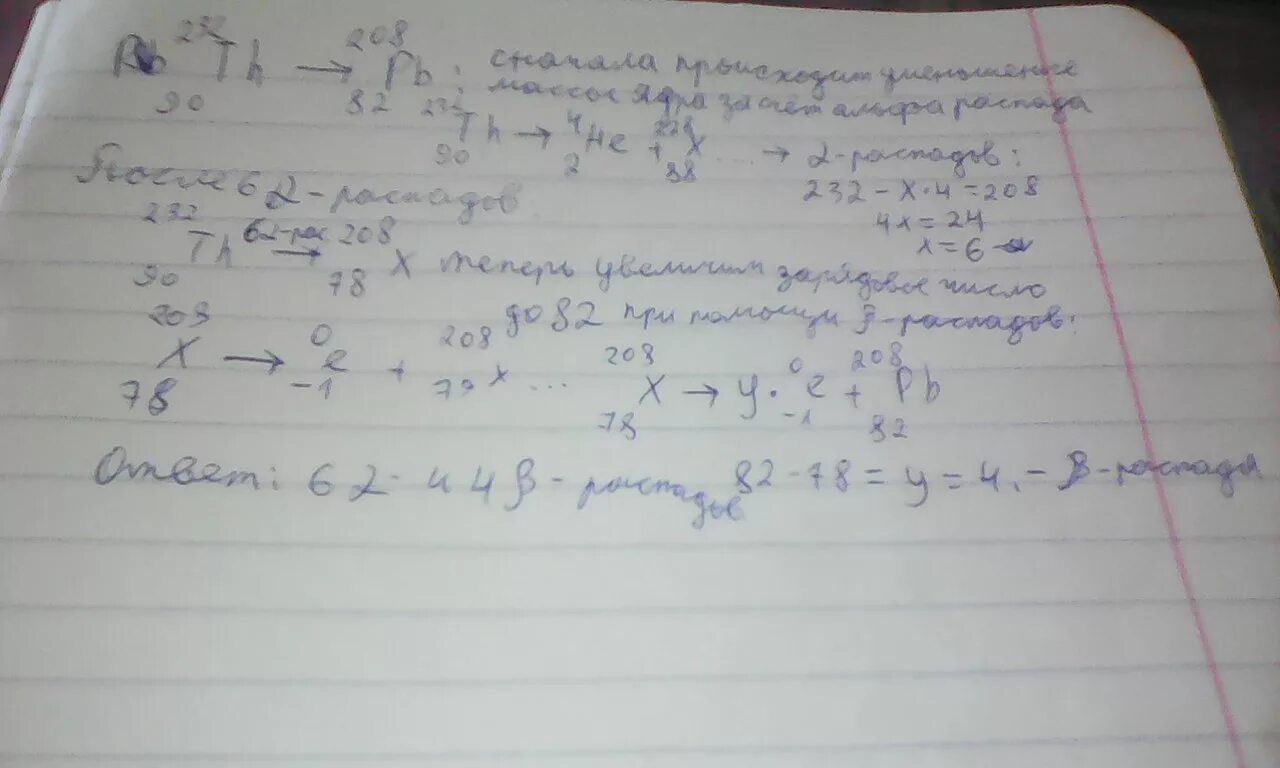 ²³²₉₀Th → ²⁰⁸₈₂Pb; сначала происходит уменьшение
массы ядра за счёт альфа распада
²³²₉₀Th → ⁴₂He + ²²⁸₈₈X ... → α-распадов:
232 - x·4 = 208
4x = 24
x = 6
После 6 α-распадов
²³²₉₀Th 6α-рас → ²⁰⁸₇₈X теперь увеличим зарядовое число
до 82 при помощи β-распадов:
²⁰⁸₇₈X → ⁰₋₁e + ²⁰⁸₇₉X ... ²⁰⁸₇₈X → y·⁰₋₁e + ²⁰⁸₈₂Pb
82 - 78 = y = 4. - β-распады
Ответ: 6 α- и 4 β-распадов